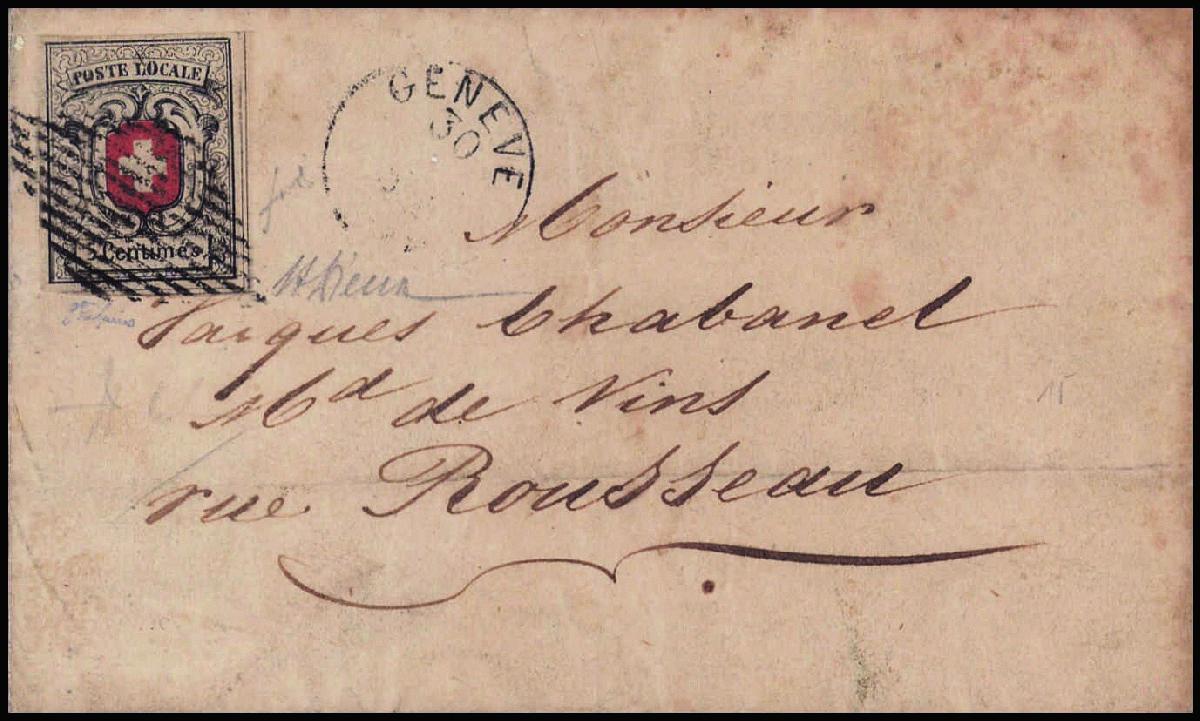 POSTE LOCALE
5 Centimes
GENEVE
30
Monsieur
Jacques Chabanel
Md de Vins
rue Rousseau
15